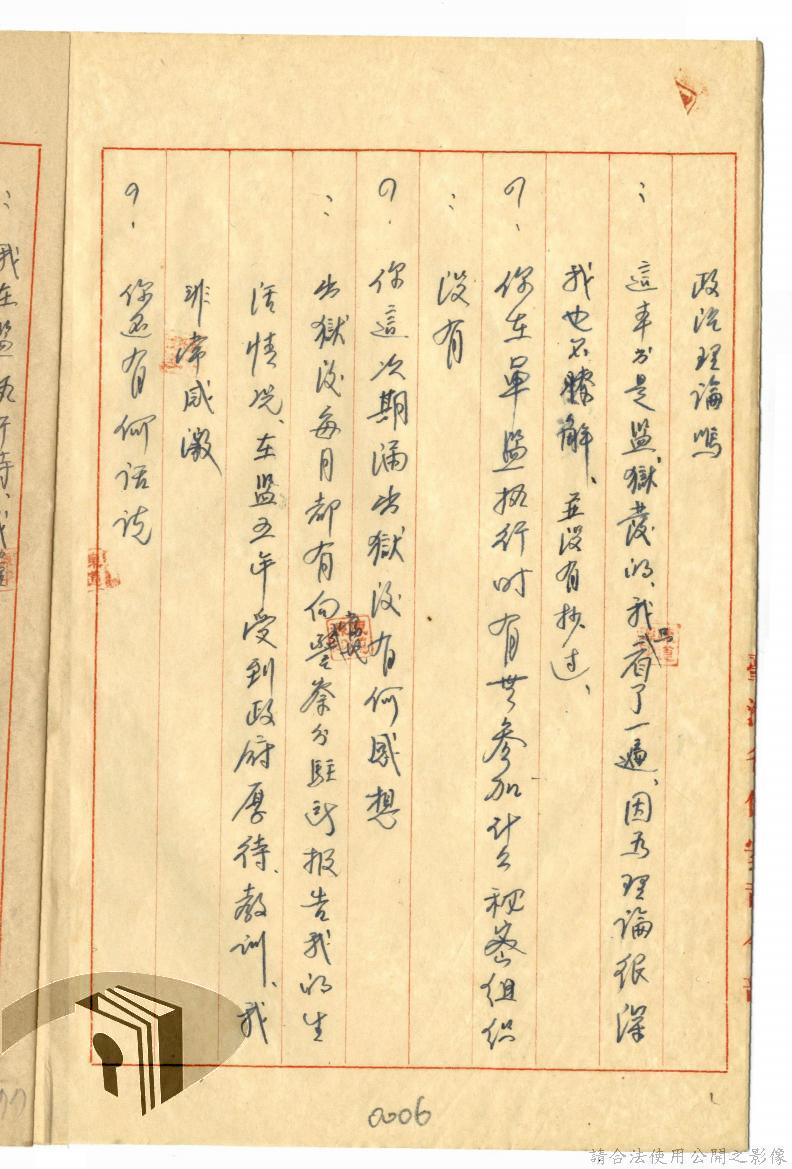 政治理論嗎
：這本書是監獄發的、我看了一遍、因為理論很深
我也不瞭解、並沒有抄过、
問：你在軍監执行时有無參加什么祕密組织
：没有
問：你這次期滿出獄後有何感想
：出獄後每月都有向警察分駐所报告我的生
活情況、在监五年受到政府厚待、教训、我
非常感激
問：你还有何话说
：我在監
0006
請合法使用公開之影像